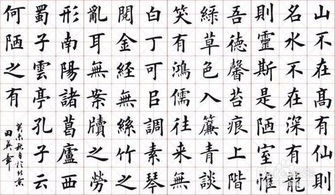 山不在高有仙則
名水不在深有龍
則靈斯是陋室惟
吾德馨苔痕上階
綠草色入簾青談
笑有鴻儒往來無
白丁可㠯調素琴
閱金經無絲竹之
亂耳無案牘之勞
形南陽諸葛廬西
蜀子雲亭孔子云
何陋之有
田英章